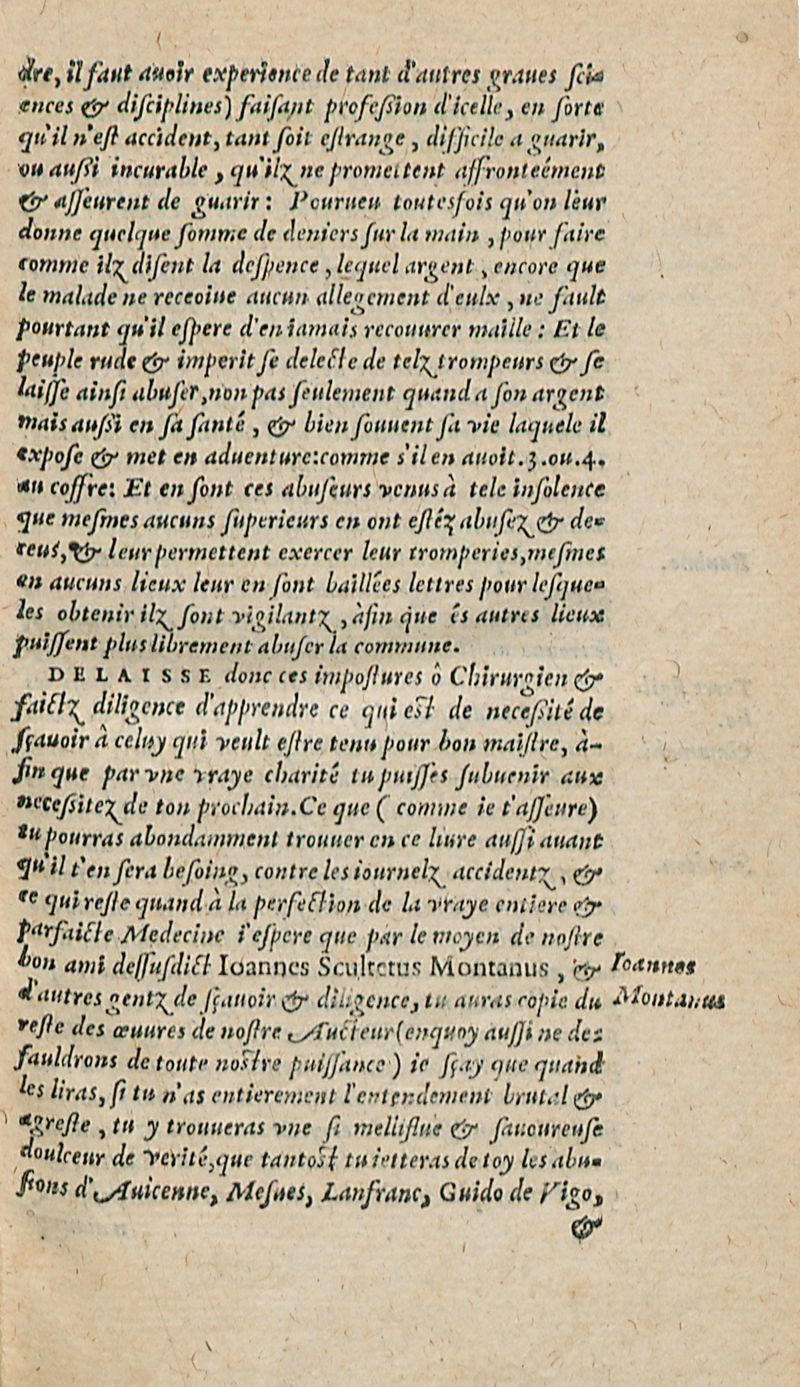 dre, il faut auoir experience de tant d'autres graues sci-
ences & disciplines) faisant profession d'icelle, en sorte
qu'il n'est accident, tant soit estrange, difficile a guarir,
ou aussi incurable, qu'ilz ne promettent affronteément
& asseurent de guarir: Pourueu toutesfois qu'on leur
donne quelque somme de deniers sur la main, pour faire
comme ilz disent la despence, lequel argent, encore que
le malade ne receoiue aucun allegement d'eulx, ne fault
pourtant qu'il espere d'en iamais recouurer maille: Et le
peuple rude & imperit se delecte de telz trompeurs & se
laisse ainsi abuser, non pas seulement quand a son argent
mais aussi en sa santé, & bien souuent sa vie laquele il
expose & met en aduenture: comme s'il en auoit .3. ou .4.
au coffre: Et en sont ces abuseurs venus à tele insolence
que mesmes aucuns superieurs en ont estéz abusez & de-
ceus, & leur permettent exercer leur tromperies, mesmes
en aucuns lieux leur en sont baillées lettres pour lesque-
les obtenir ilz sont vigilantz, àfin que és autres lieux
puissent plus librement abuser la commune.
DELAISSE donc ces impostures ô Chirurgien &
faictz diligence d'apprendre ce qui est de necessité de
sçauoir à celuy qui veult estre tenu pour bon maistre, à-
fin que par vne vraye charité tu puisses subuenir aux
necessitez de ton prochain. Ce que (comme ie t'asseure)
tu pourras abondamment trouuer en ce liure aussi auant
qu'il t'en sera besoing, contre les iournelz accidentz, &
ce qui reste quand à la perfection de la vraye entiere &
parfaicte Medecine i'espere que par le moyen de nostre
bon ami dessusdict Ioannes Scultetus Montanus, & Ioannes
d'autres gentz de sçauoir & diligence, tu auras copie du Montanus
reste des œuures de nostre Aucteur (en quoy aussi ne de-
fauldrons de toute nostre puissance) ie sçay que quand
les liras, si tu n'as entierement l'entendement brutal &
agreste, tu y trouueras vne si melliflue & sauoureuse
doulceur de verité, que tantost tu ietteras de toy les abu-
sions d'Auicenne, Mesues, Lanfranc, Guido de Vigo,
&